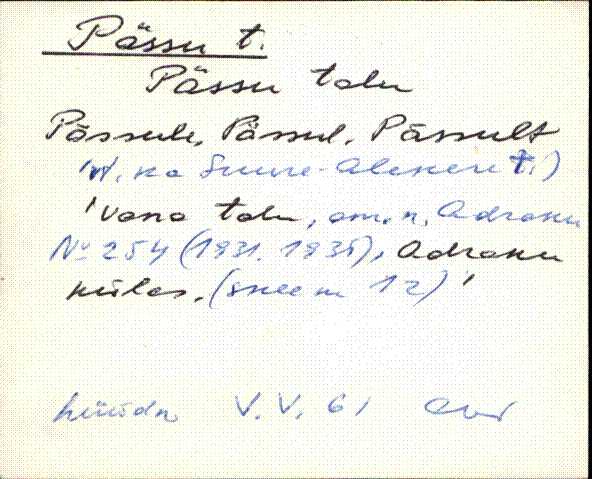 Pässu t.
Pässu talu
Pässule, Pässul, Pässult
(vt. ka Suure-Aleksei t.)
'vana talu, om. n. Adraku
No 254 (1931. 1935), Adraku
külas. (skeem 12)'
V. V. 61